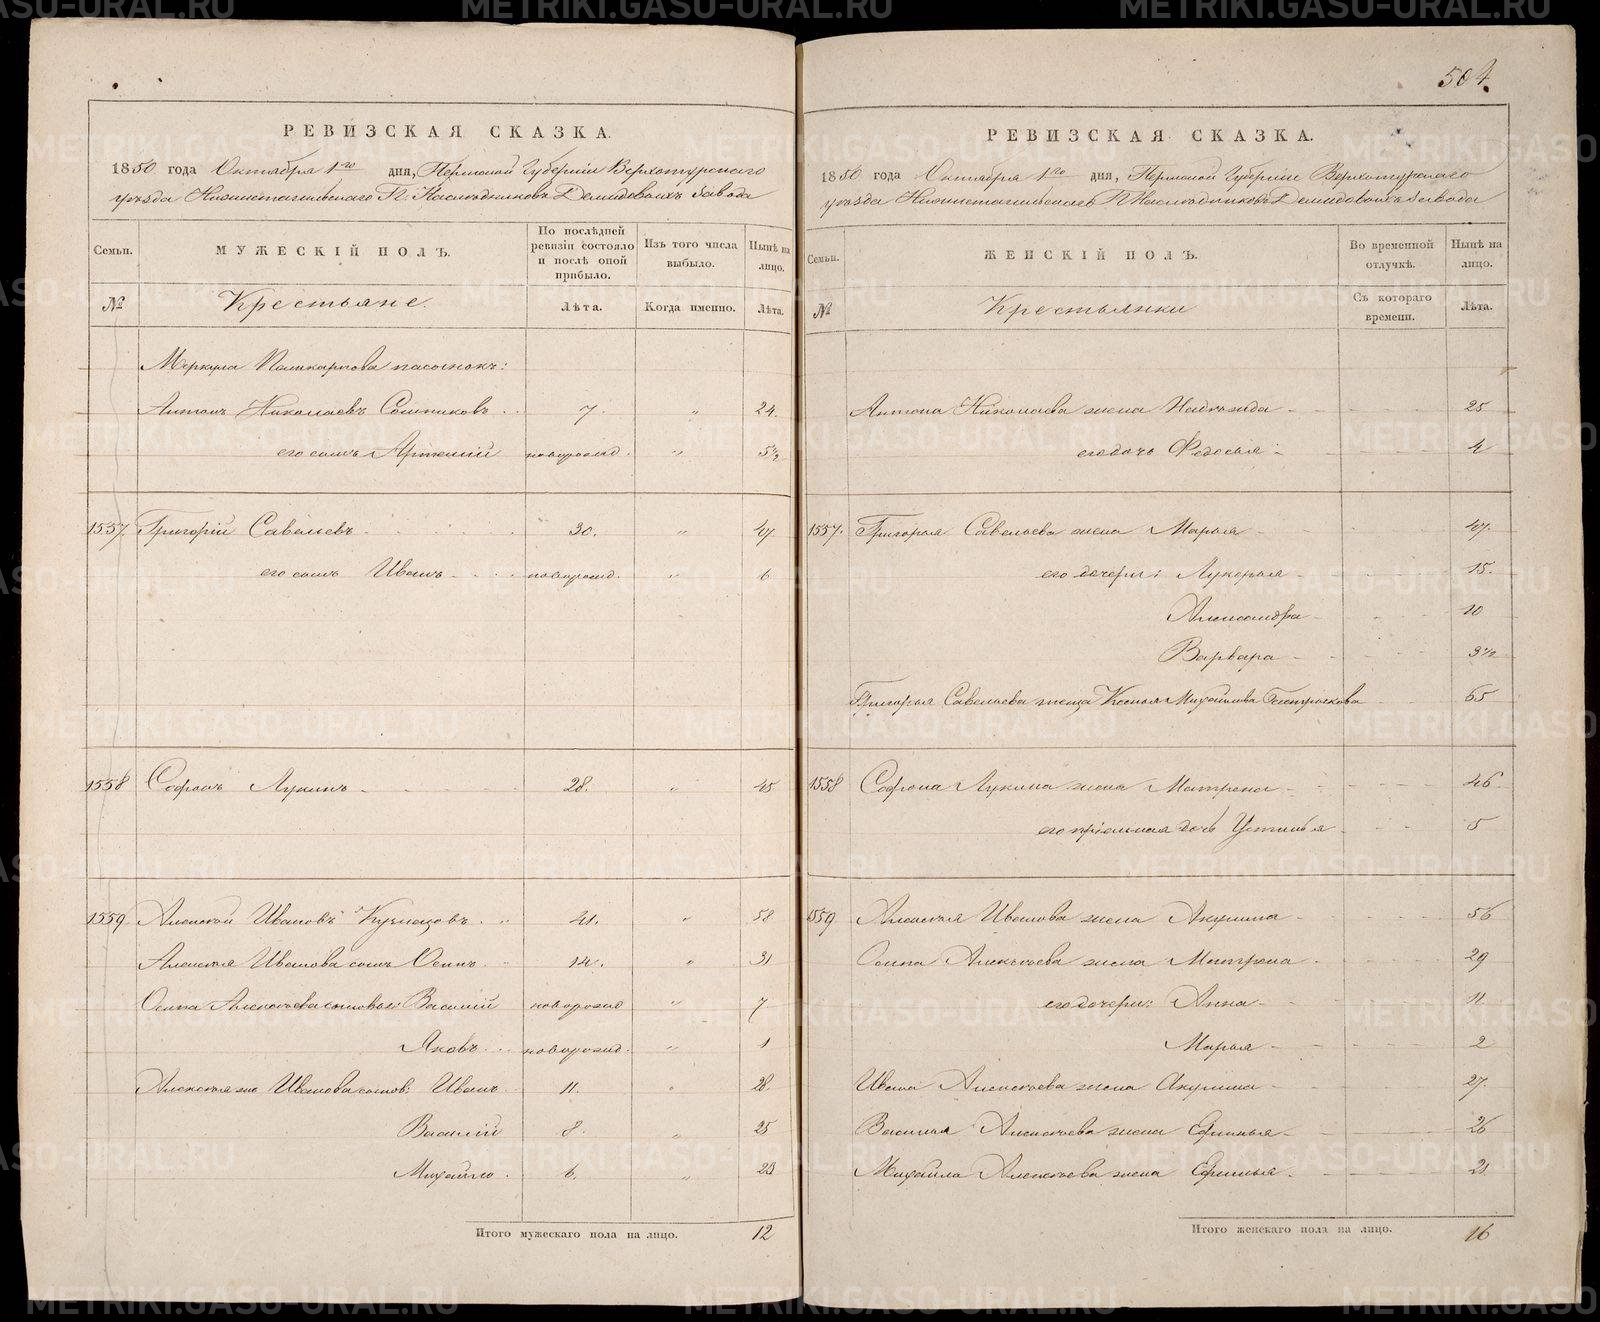 504.
РЕВИЗСКАЯ СКАЗКА.
1850 года Октября 1го дня, Пермской Губерніи Верхотурскаго
уѣзда Нижнетагильскаго Г. Наслѣдниковъ Демидовыхъ Завода
Семьи. МУЖЕСКІЙ ПОЛЪ. По послѣдней ревизіи состояло и послѣ оной прибыло. Изъ того числа выбыло. Нынѣ на лицо.
№ Крестьяне. Лѣта. Когда именно. Лѣта.
Меркула пасынокъ:
Антонъ Николаевъ Сошниковъ 7. " 24.
его сынъ Артемій новорожд. " 5½
1557. Григорій Савельевъ 30. " 47
его сынъ Иванъ новорожд. " 6
1558 Софонъ Лукинъ 28. " 45
1559 Алексѣй Ивановъ Кузнецовъ 41. " 58
Алексѣя Иванова сынъ Осипъ 14. " 31
Осипа Алексѣева сыновья: Василій новорожд " 7
Яковъ новорожд. " 1
Алексѣя же Иванова сынов: Иванъ 11. " 28
Василій 8. " 25
Михайло 6. " 23
Итого мужескаго пола на лицо. 12
РЕВИЗСКАЯ СКАЗКА.
1850 года Октября 1го дня, Пермской Губерніи Верхотурскаго
уѣзда Нижнетагильскаго Г. Наслѣдниковъ Демидовыхъ Завода
Семьи. ЖЕНСКІЙ ПОЛЪ. Во временной отлучкѣ. Нынѣ на лицо.
№ Крестьянки Съ котораго времени. Лѣта.
Антона Николаева жена Надежда 25
его дочь Федосья 4
1557. Григорья Савельева жена Марья 47.
его дочери: Лукерья 15.
Александра 10
Варвара 3½
Григорья Савельева теща Ксенья Михайлова 65
1558 Софона Лукина жена Матрена 46
его пріемная дочь Устинья 5
1559 Алексѣя Иванова жена Акулина 56
Осипа Алексѣева жена Матрена 29
его дочери: Анна 11
Марья 2
Ивана Алексѣева жена Акулина 27.
Василья Алексѣева жена Ефимья 26
Михайла Алексѣева жена Ефимья 21
Итого женскаго пола на лицо. 16
METRIKI.GASO-URAL.RU